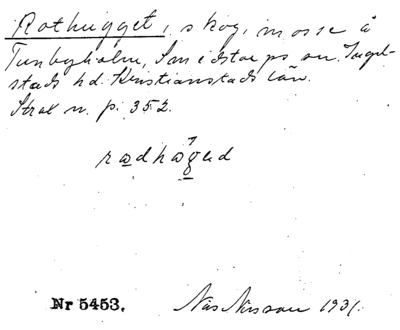 Rothugget, skog, mosse å
Tunbyholm, Smedstorps sn. Ingel-
stads hd. Kristianstads län.
Strax n. p. 352.
radhǫgad
Nr 5453. Nils Nilsson 1931.